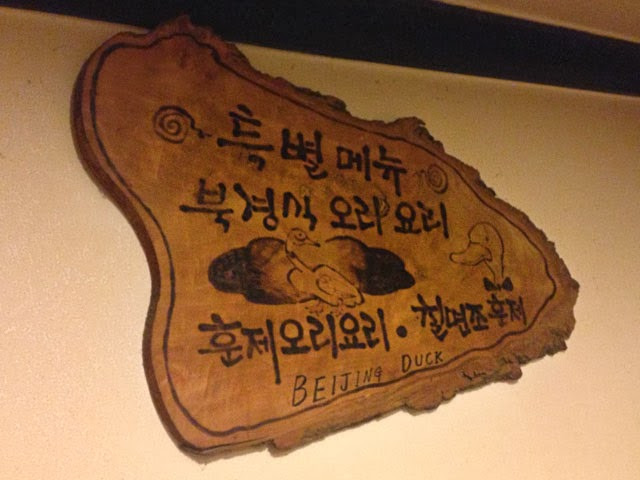 특별메뉴
북경식 오리 요리
훈제오리요리 · 칠면조훈제
BEIJING DUCK